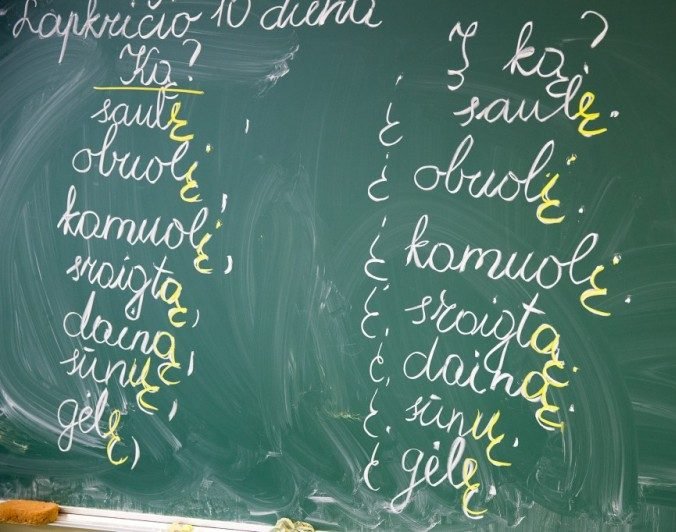 Lapkričio 10 diena
Ką?
saulę,
obuolį,
kamuolį,
sraigtą,
dainą,
sūnų,
gėlę,
Į ką?
į saulę.
į obuolį.
į kamuolį.
į sraigtą.
į dainą.
į sūnų.
į gėlę.